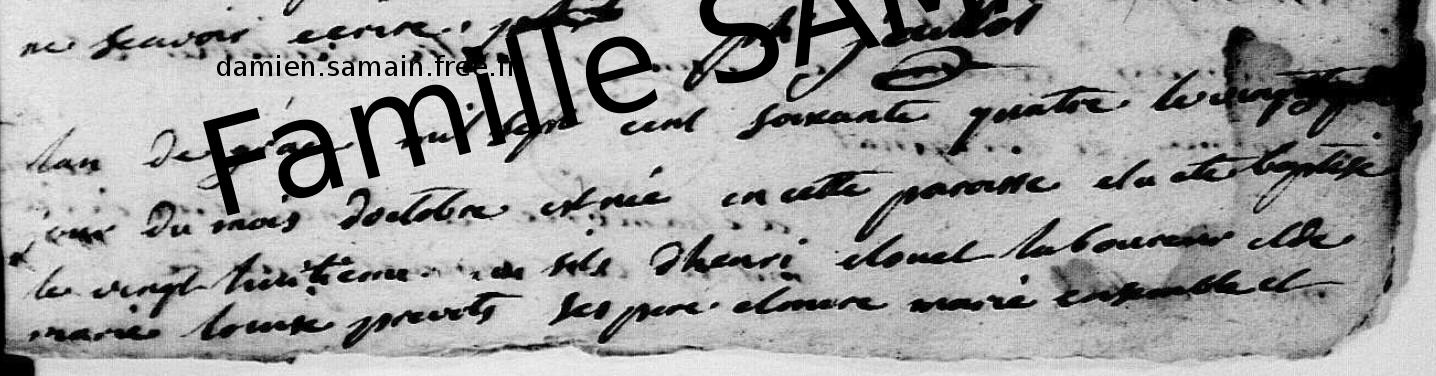 ne scavoir ecrire.
Famille SAM
damien.samain.free.fr
lan de grace mil sept cent soixante quatre le vingt
jour du mois doctobre est né en cette paroisse et a ete baptisé
le vingt huitieme un fils dhenri laboureur et de
marie louise prevots ses pere et mere marié ensemble et